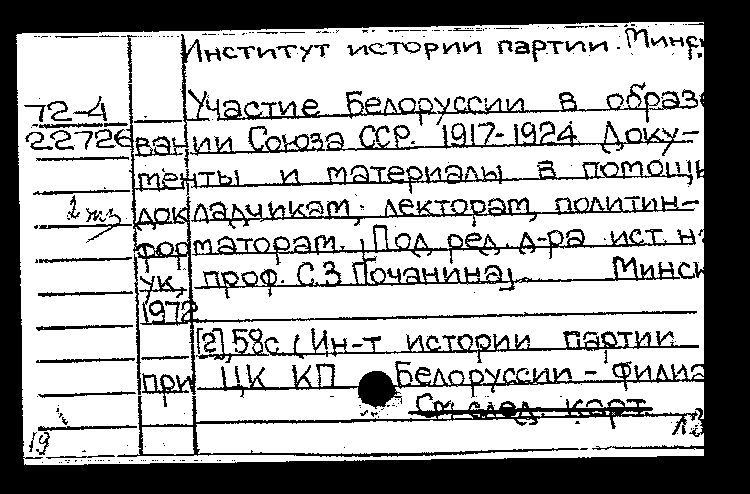 Институт истории партии. Минск
72-4 Участие Белоруссии в образо
22726 вании Союза ССР. 1917-1924 Доку-
менты и материалы в помощь
2 экз докладчикам, лекторам, политин-
форматорам. Под ред. д-ра ист. на
ук, проф. С.З Почанина, Минск
1972
[2], 58с (Ин-т истории партии
при ЦК КП Белоруссии - филиа
См след. карт.
19